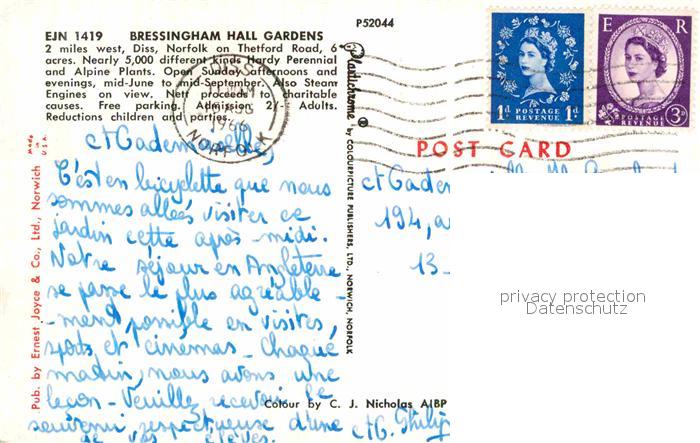 EJN 1419 BRESSINGHAM HALL GARDENS
2 miles west, Diss, Norfolk on Thetford Road, 6
acres. Nearly 5,000 different kinds Hardy Perennial
and Alpine Plants. Open Sunday afternoons and
evenings, mid-June to mid-September. Also Steam
Engines on view. Nett proceeds to charitable
causes. Free parking. Admission 2/- Adults.
Reductions children and parties.
DISS
1966
NORFOLK
Mademoiselle,
C'est en bicyclette que nous
sommes allées visiter ce
jardin cette après-midi.
Notre séjour en Angleterre
se passe le plus agréable-
-ment possible en visites,
spots et cinemas. Chaque
matin, nous avons une
leçon - Veuillez recevoir le
souvenir respectueux d'une
de vos élèves.
Made in U.S.A.
Pub. by Ernest Joyce & Co., Ltd., Norwich
P52044
Plastichrome ®
by COLOURPICTURE PUBLISHERS, LTD., NORWICH, NORFOLK
1d POSTAGE REVENUE 1d
E R
POSTAGE REVENUE 3D
POST CARD
194, a
13-
privacy protection
Datenschutz
Colour by C. J. Nicholas AIBP